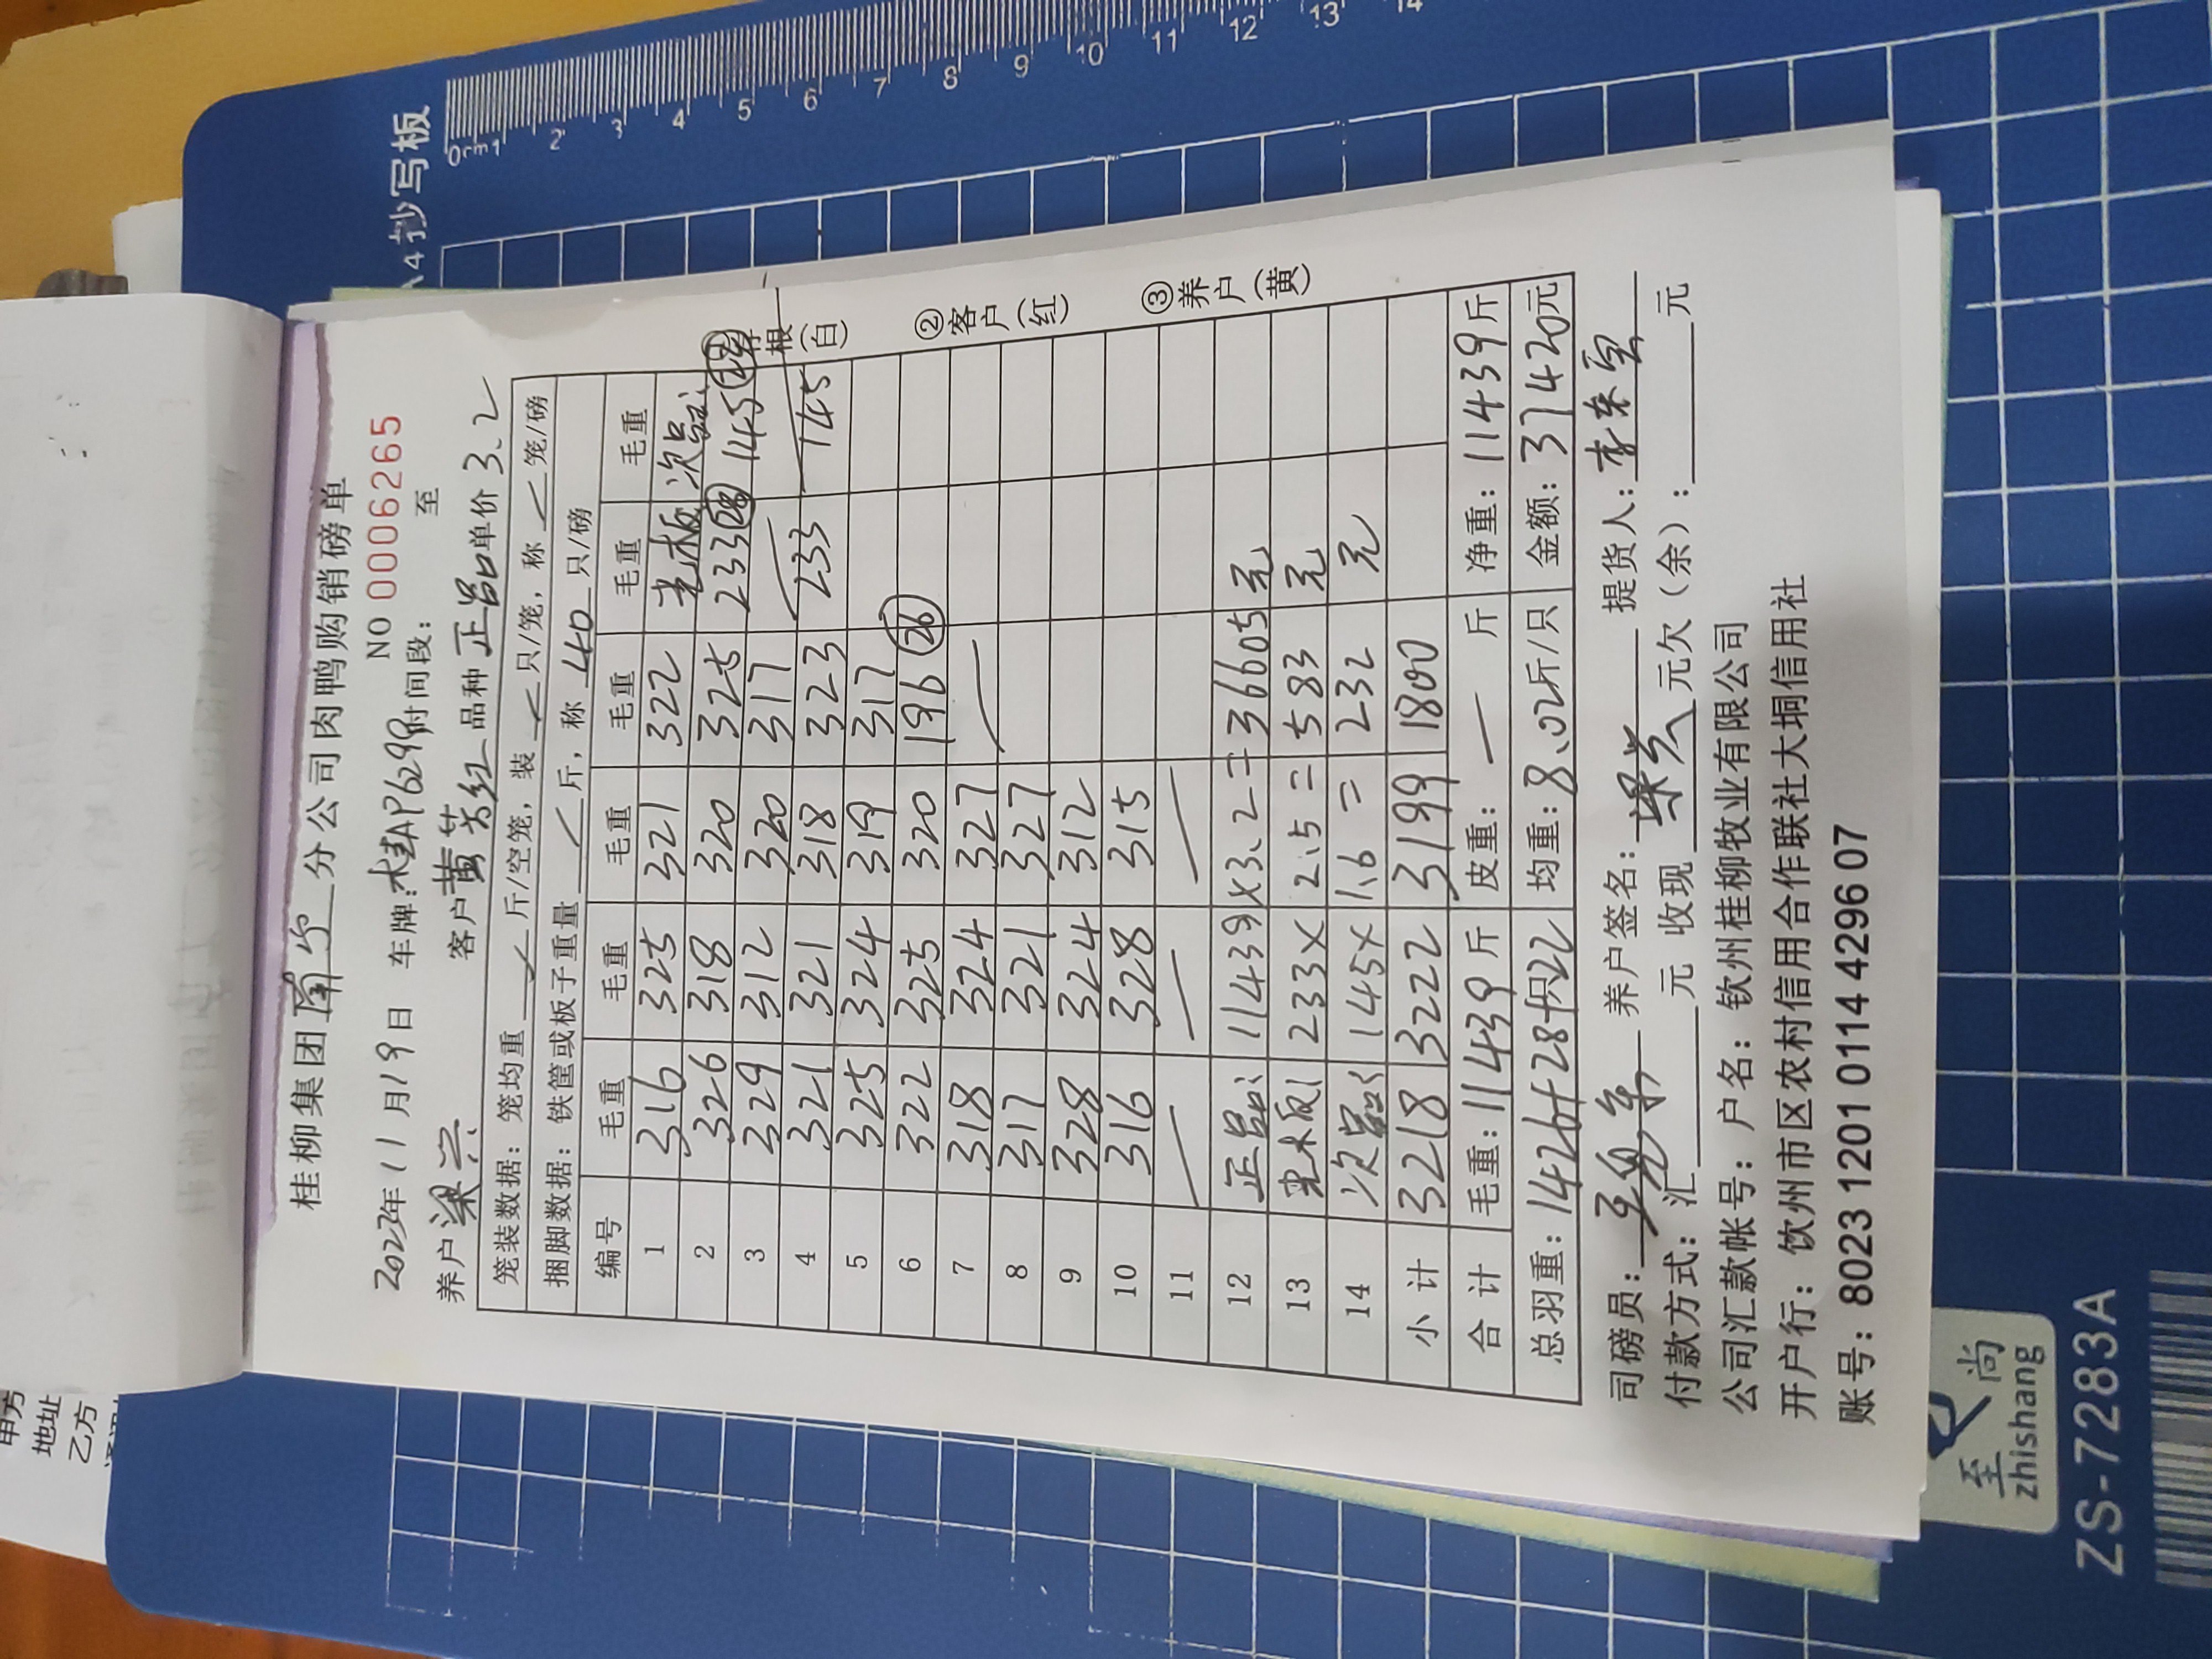 桂柳集团南宁分公司肉鸭购销磅单
NO 0006265
2022年11月19日 车牌:桂AP6299时间段: 至
养户梁兴 客户黄芳红 品种正品 单价3.2
笼装数据: 笼均重 斤/空笼, 装 只/笼, 称 笼/磅
捆脚数据: 铁筐或板子重量 斤, 称 40 只/磅
编号 毛重 毛重 毛重 毛重 毛重 毛重
1 316 325 321 322 光板 次品:
2 326 318 320 325 233 28 145
3 329 312 320 317
4 321 321 318 323 233 145
5 325 324 319 317
6 322 325 320 196 26
7 318 324 327
8 317 321 327
9 328 324 312
10 316 328 315
11
12 正品: 11439 x3.2= 36605 元
13 光板: 233x 2.5= 583 元
14 次品: 145x 1.6= 232 元
小计 3218 3222 3199 1800
合计 毛重: 11439斤 皮重: 斤 净重: 11439斤
总羽重: 1426+28+22只 均重: 8.02斤/只 金额: 37420元
①存根(白)
②客户(红)
③养户(黄)
司磅员: 养户签名: 梁兴 提货人:
付款方式: 汇 元 收现 元欠(余): 元
公司汇款帐号: 户名: 钦州桂柳牧业有限公司
开户行: 钦州市区农村信用合作联社大垌信用社
账号: 8023 1201 0114 4296 07
A4抄写板
0cm1 2 3 4 5 6 7 8 9 10 11 12 13 14
至尚
zhishang
ZS-7283A
甲方
地址
乙方